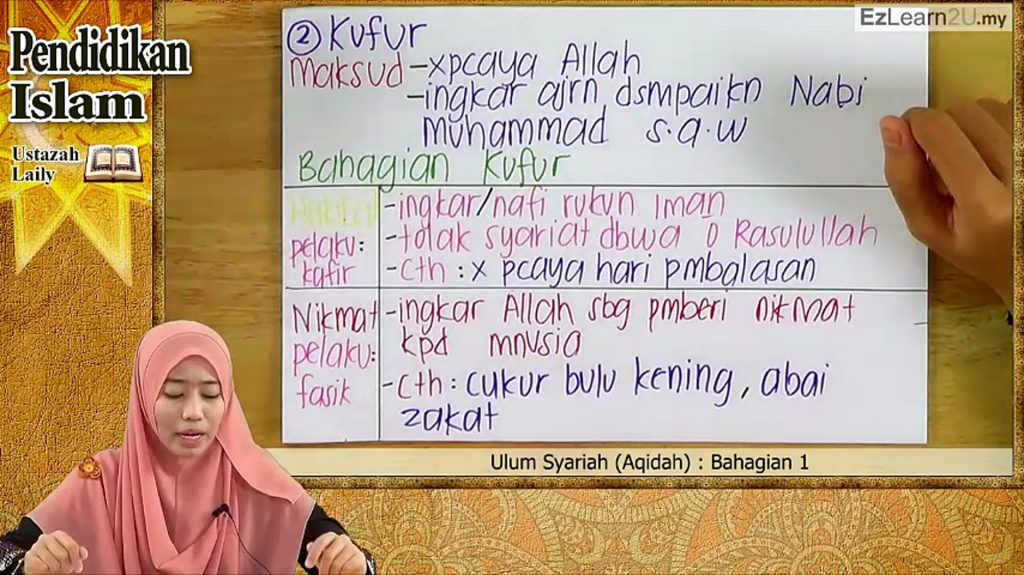 EzLearn2U.my
Pendidikan
Islam
Ustazah
Laily
② Kufur
Maksud - xpcaya Allah
- ingkar ajrn dsmpaikn Nabi
Muhammad s.a.w
Bahagian Kufur
pelaku:
kafir
- ingkar/nafi rukun Iman
- tolak syariat dbwa o Rasulullah
- Cth : x pcaya hari pmbalasan
Nikmat
pelaku:
fasik
- ingkar Allah sbg pmberi nikmat
kpd mnusia
- Cth : cukur bulu kening, abai
zakat
Ulum Syariah (Aqidah) : Bahagian 1